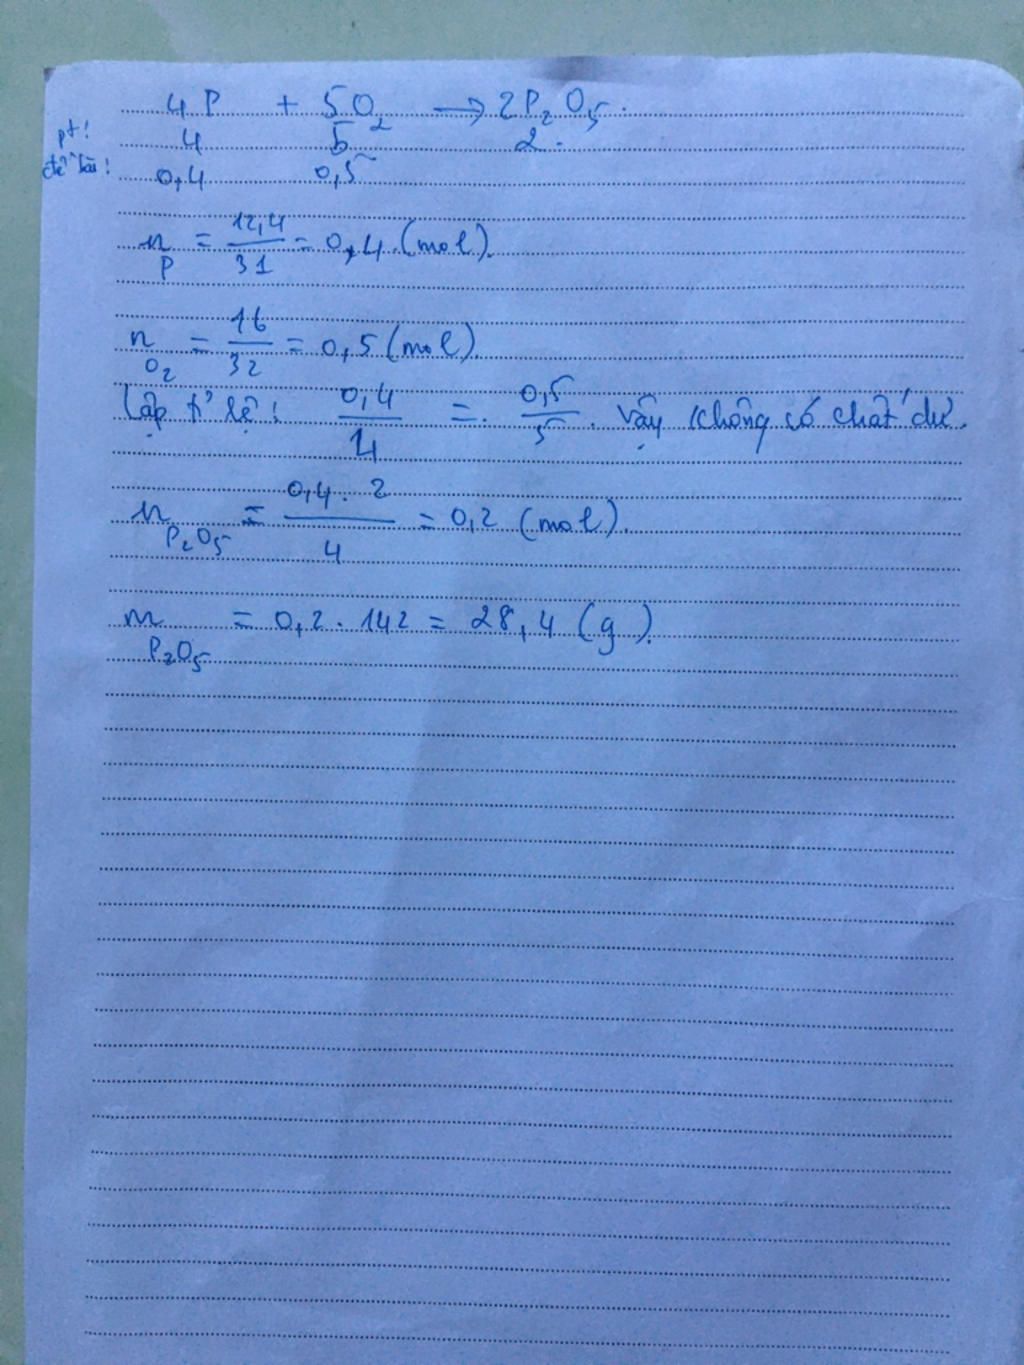 4P + 5O₂ → 2P₂O₅.
pt: 4 5 2.
đề bài: 0,4 0,5
n P = 12,4/31 = 0,4 (mol).
n O₂ = 16/32 = 0,5 (mol).
Lập tỉ lệ: 0,4/4 = 0,5/5. Vậy không có chất dư.
n P₂O₅ = 0,4.2/4 = 0,2 (mol).
m P₂O₅ = 0,2.142 = 28,4 (g).